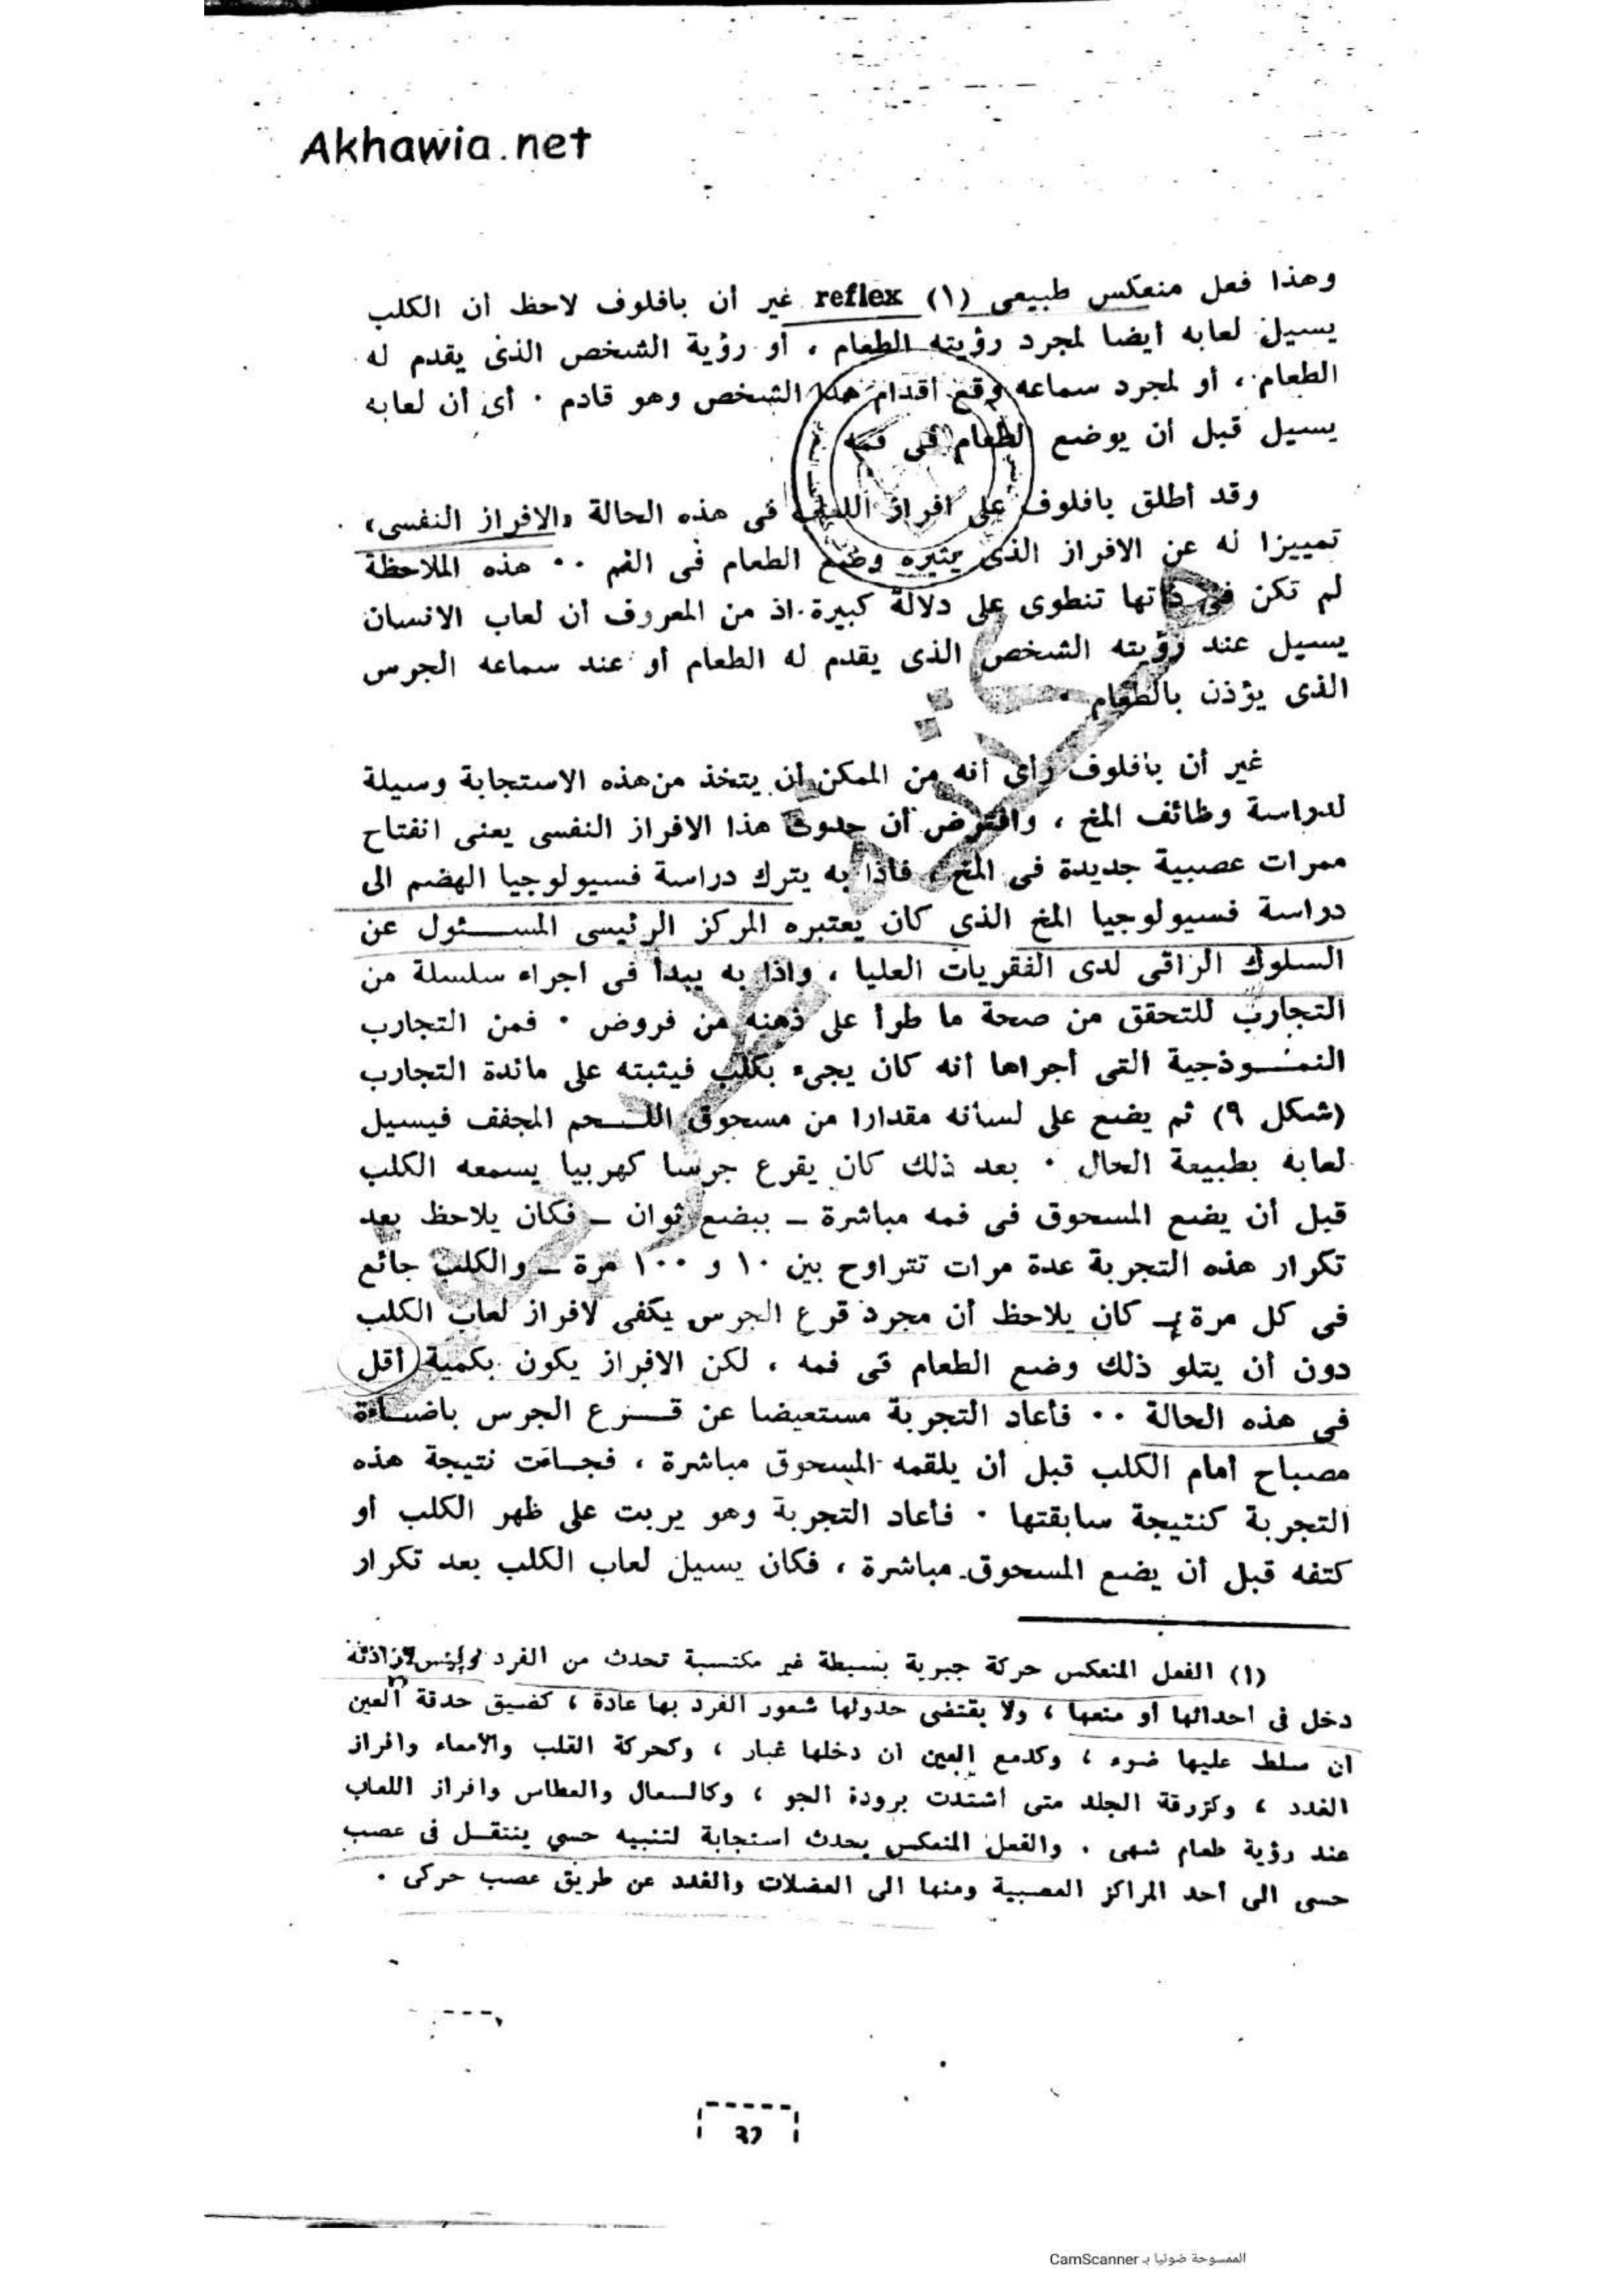 Akhawia.net
وهذا فعل منعكس طبيعى (١) reflex غير أن بافلوف لاحظ أن الكلب
يسيل لعابه أيضا لمجرد رؤيته الطعام ، أو رؤية الشخص الذى يقدم له
الطعام ، أو لمجرد سماعه وقع أقدام هذا الشخص وهو قادم · أى أن لعابه
يسيل قبل أن يوضع الطعام فى فمه
وقد أطلق بافلوف على افراز اللعاب فى هذه الحالة «الافراز النفسى»
تمييزا له عن الافراز الذى يثيره وضع الطعام فى الفم ·· هذه الملاحظة
لم تكن فى ذاتها تنطوى على دلالة كبيرة · اذ من المعروف أن لعاب الانسان
يسيل عند رؤيته الشخص الذى يقدم له الطعام أو عند سماعه الجرس
الذى يؤذن بالطعام ·
غير أن بافلوف رأى أنه من الممكن أن يتخذ من هذه الاستجابة وسيلة
لدراسة وظائف المخ ، وافترض أن حدوث هذا الافراز النفسى يعنى انفتاح
ممرات عصبية جديدة فى المخ ، فاذا به يترك دراسة فسيولوجيا الهضم الى
دراسة فسيولوجيا المخ الذى كان يعتبره المركز الرئيسى المسئول عن
السلوك الراقى لدى الفقريات العليا ، واذا به يبدأ فى اجراء سلسلة من
التجارب للتحقق من صحة ما طرأ على ذهنه من فروض · فمن التجارب
النموذجية التى أجراها أنه كان يجىء بكلب فيثبته على مائدة التجارب
(شكل ٩) ثم يضع على لسانه مقدارا من مسحوق اللحم المجفف فيسيل
لعابه بطبيعة الحال · بعد ذلك كان يقرع جرسا كهربيا يسمعه الكلب
قبل أن يضع المسحوق فى فمه مباشرة ــ ببضع ثوان ــ فكان يلاحظ بعد
تكرار هذه التجربة عدة مرات تتراوح بين ١٠ و ١٠٠ مرة ــ والكلب جائع
فى كل مرة ــ كان يلاحظ أن مجرد قرع الجرس يكفى لافراز لعاب الكلب
دون أن يتلو ذلك وضع الطعام فى فمه ، لكن الافراز يكون بكمية أقل
فى هذه الحالة ·· فأعاد التجربة مستعيضا عن قرع الجرس باضاءة
مصباح أمام الكلب قبل أن يلقمه المسحوق مباشرة ، فجاءت نتيجة هذه
التجربة كنتيجة سابقتها · فأعاد التجربة وهو يربت على ظهر الكلب أو
كتفه قبل أن يضع المسحوق مباشرة ، فكان يسيل لعاب الكلب بعد تكرار
(١) الفعل المنعكس حركة جبرية بسيطة غير مكتسبة تحدث من الفرد وليس لارادته
دخل فى احداثها أو منعها ، ولا يقتضى حدوثها شعور الفرد بها عادة ، كضيق حدقة العين
ان سلط عليها ضوء ، وكدمع العين ان دخلها غبار ، وكحركة القلب والأمعاء وافراز
الغدد ، وكزرقة الجلد متى اشتدت برودة الجو ، وكالسعال والعطاس وافراز اللعاب
عند رؤية طعام شهى · والفعل المنعكس يحدث استجابة لتنبيه حسي ينتقل فى عصب
حسى الى أحد المراكز العصبية ومنها الى العضلات والغدد عن طريق عصب حركى ·
الممسوحة ضوئيا بـ CamScanner